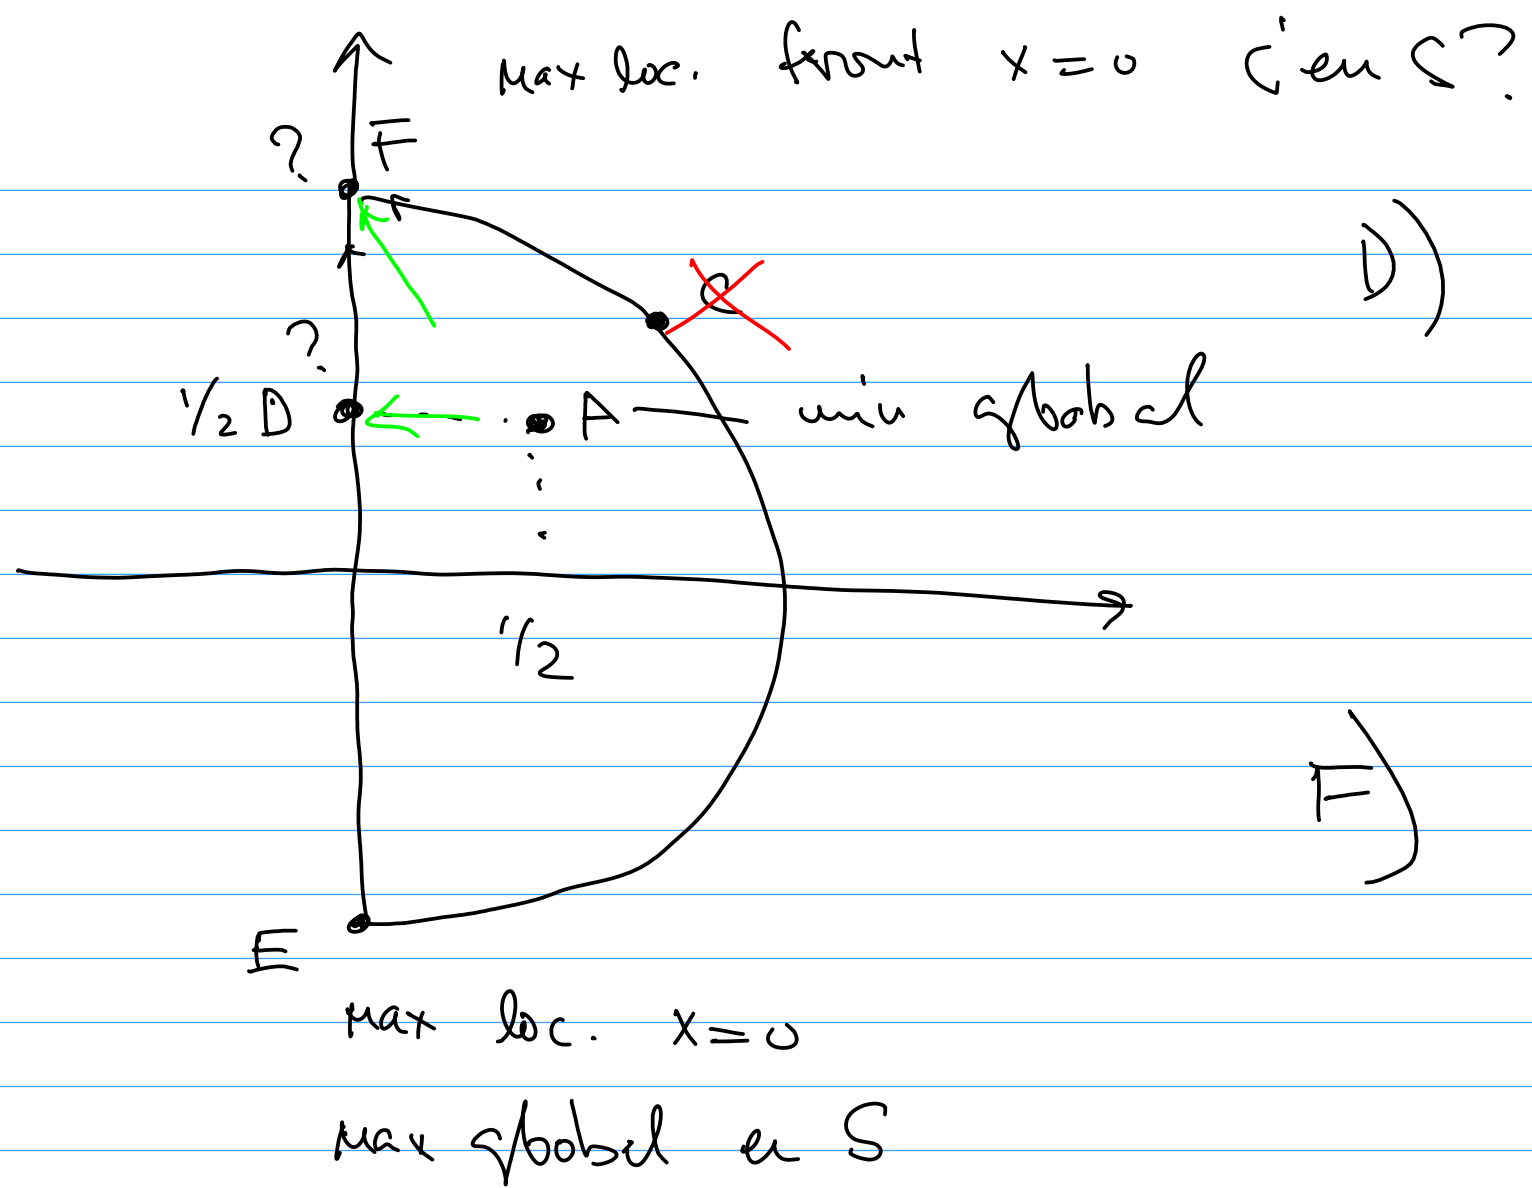 Max loc. front x=0 ¿en S?
? F
D)
C
?
1/2 D A — min global
1/2
F)
E
Max loc. x=0
Max global en S